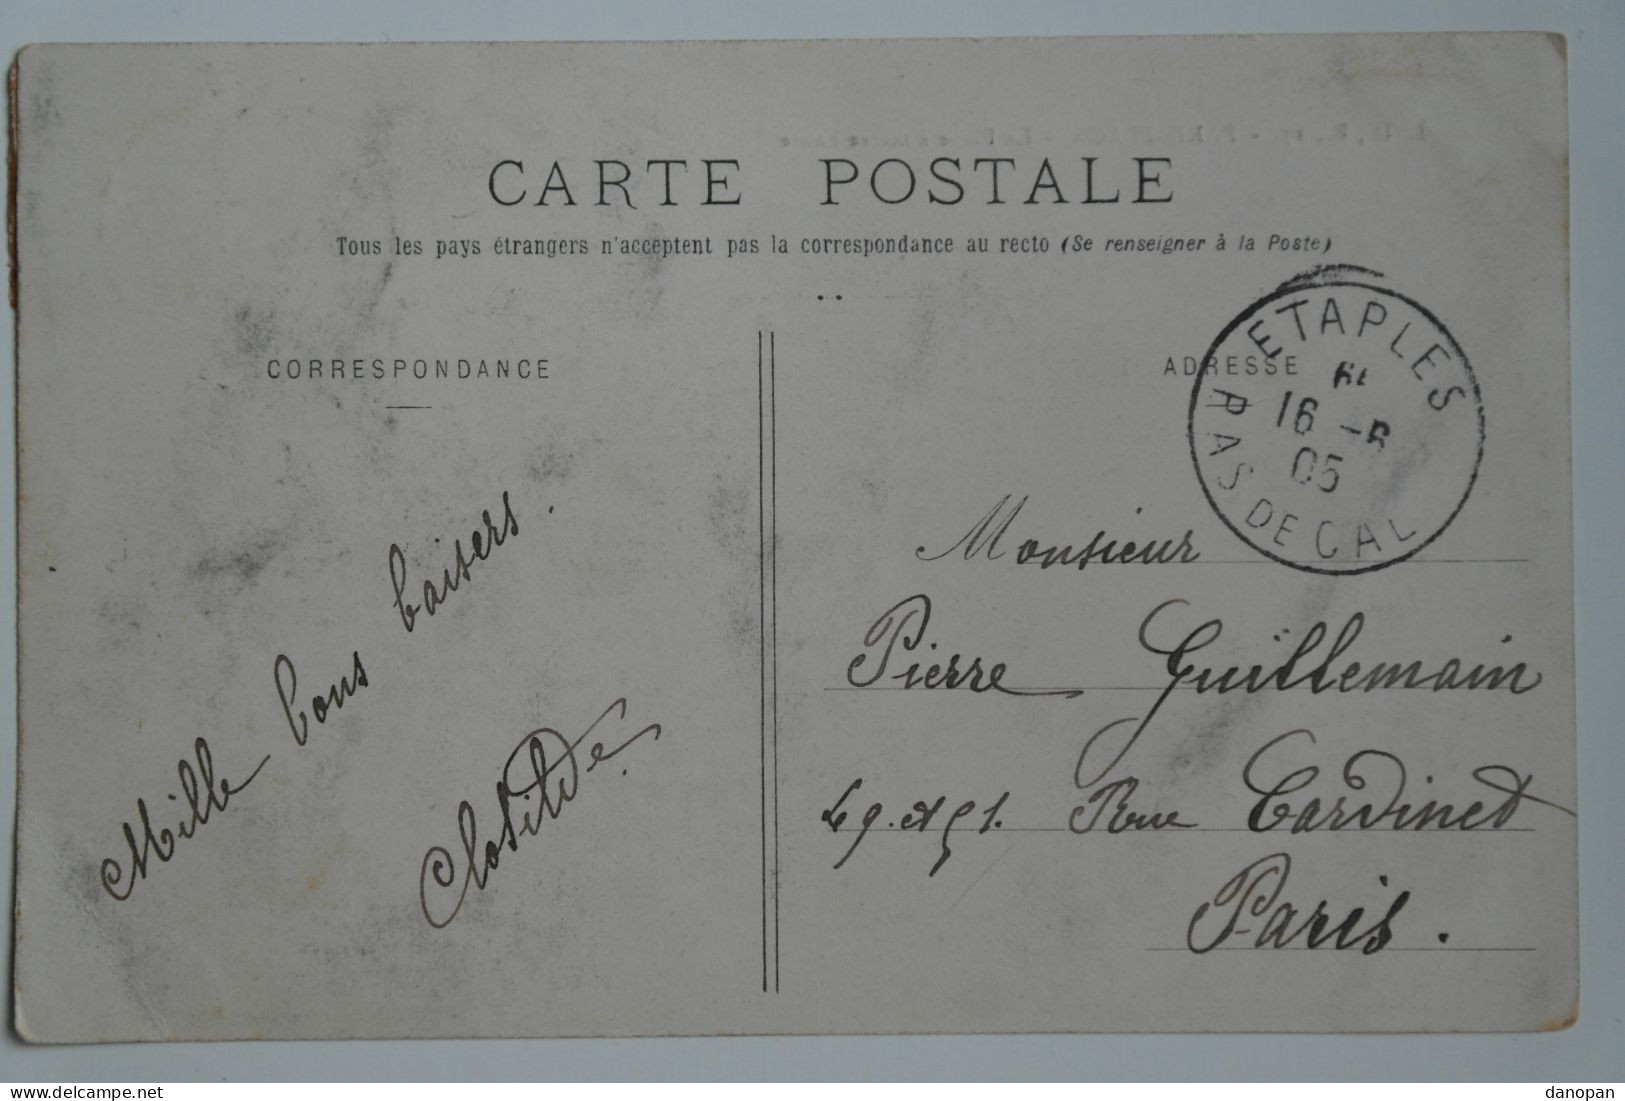 CARTE POSTALE
Tous les pays étrangers n'acceptent pas la correspondance au recto (Se renseigner à la Poste)
CORRESPONDANCE
ADRESSE
ETAPLES
16 -6
05
PAS DE CAL
Mille bons baisers.
Clotilde.
Monsieur
Pierre Guillemain
49. et 51. Rue Cardinet
Paris.
delcampe.net
danopan